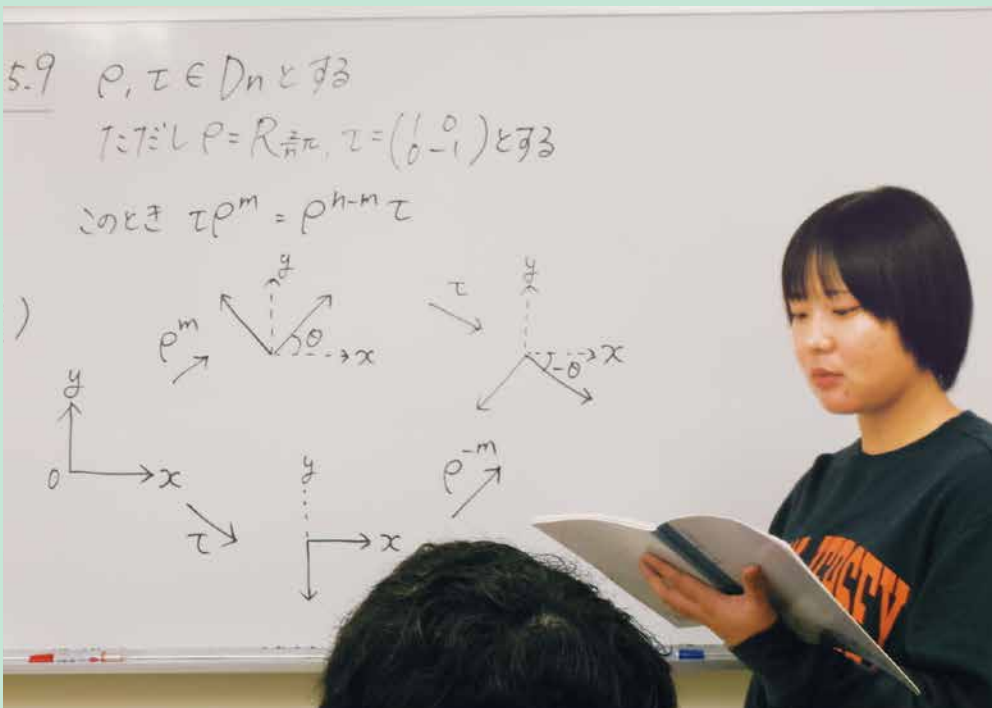 5.9 ρ, τ ∈ Dn とする
ただし ρ = R_{\frac{2}{n}π}, τ = (1 0
0 -1) とする
このとき τρ^m = ρ^{n-m} τ
)
y
θ
x
ρ^m
τ
y
x
-θ
y
0
x
τ
y
x
ρ^{-m}